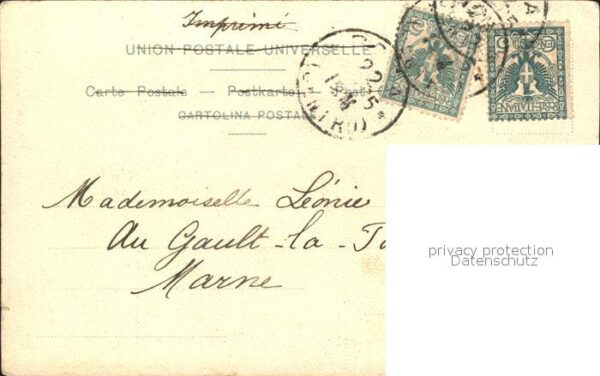 Imprimé
UNION POSTALE UNIVERSELLE
Carte Postale — Postkarte — Post
CARTOLINA POSTALE
Mademoiselle Léonie
Au Gault-la-
Marne
privacy protection
Datenschutz